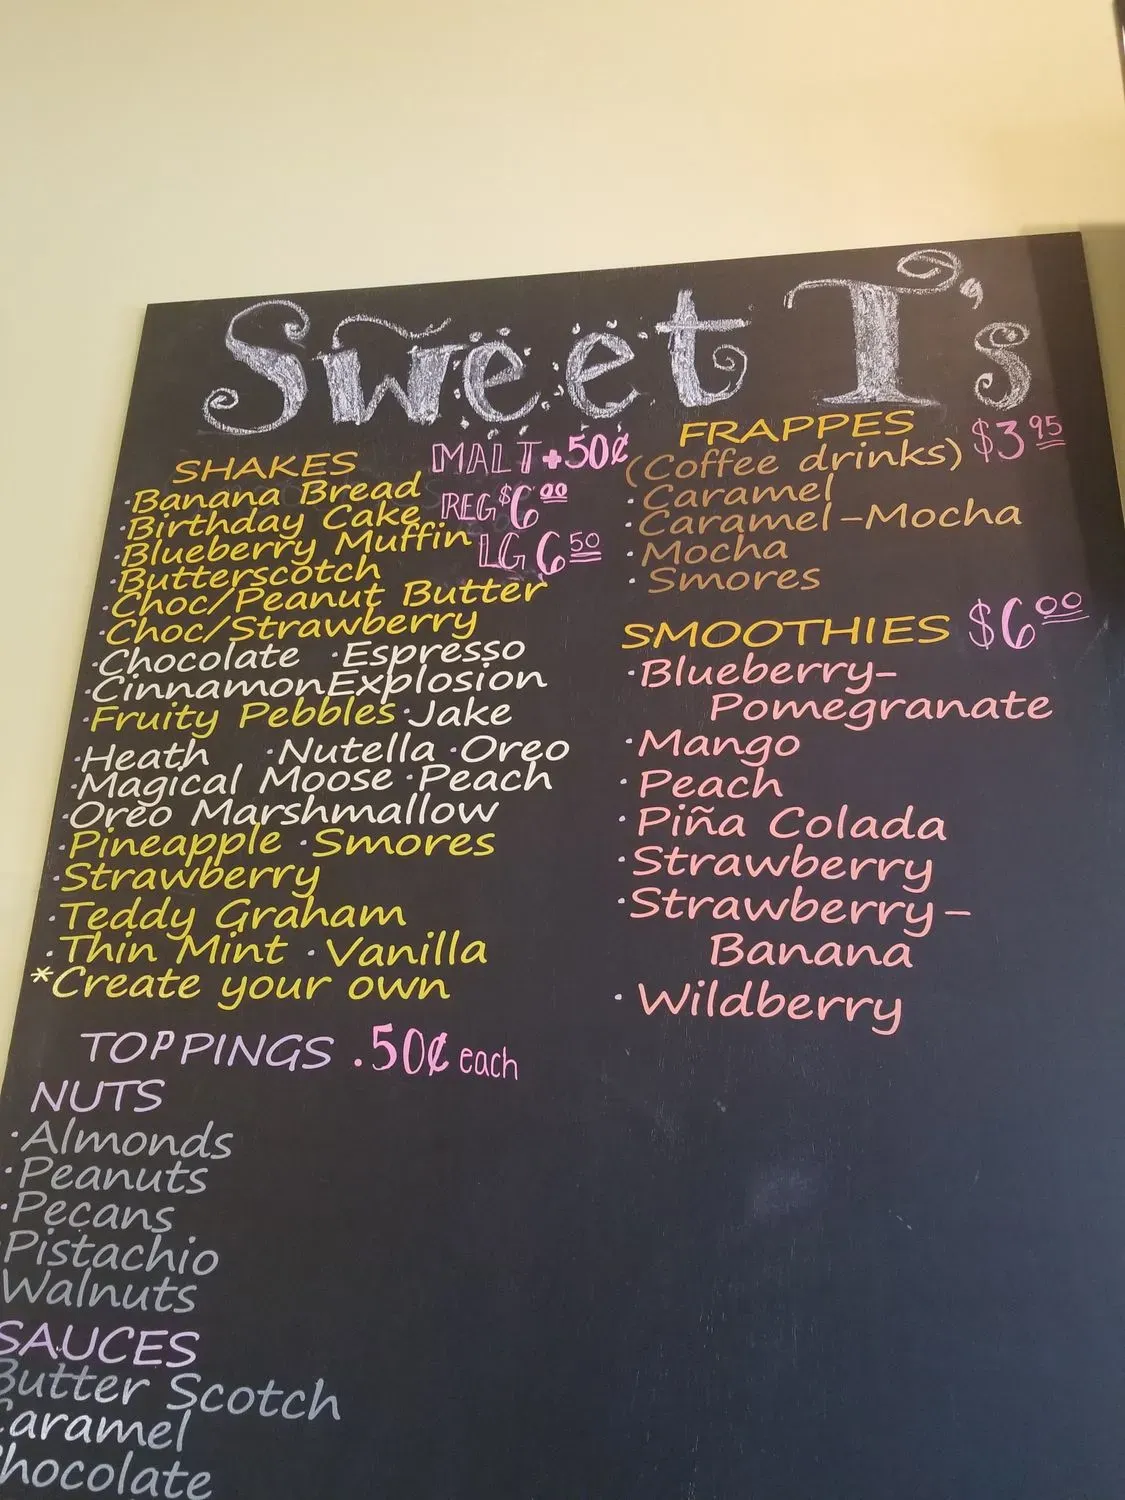 Sweet T's
SHAKES
MALT +50¢
·Banana Bread
REG $6.00
·Birthday Cake
·Blueberry Muffin
LG 6.50
·Butterscotch
·Choc/Peanut Butter
·Choc/Strawberry
·Chocolate ·Espresso
·Cinnamon Explosion
·Fruity Pebbles ·Jake
·Heath ·Nutella ·Oreo
·Magical Moose ·Peach
·Oreo Marshmallow
·Pineapple ·Smores
·Strawberry
·Teddy Graham
·Thin Mint ·Vanilla
*Create your own
TOPPINGS .50¢ each
NUTS
·Almonds
·Peanuts
·Pecans
Pistachio
Walnuts
SAUCES
Butter Scotch
Caramel
Chocolate
FRAPPES $3.95
(Coffee drinks)
·Caramel
·Caramel-Mocha
·Mocha
·Smores
SMOOTHIES $6.00
·Blueberry-
Pomegranate
·Mango
·Peach
·Piña Colada
·Strawberry
·Strawberry-
Banana
·Wildberry